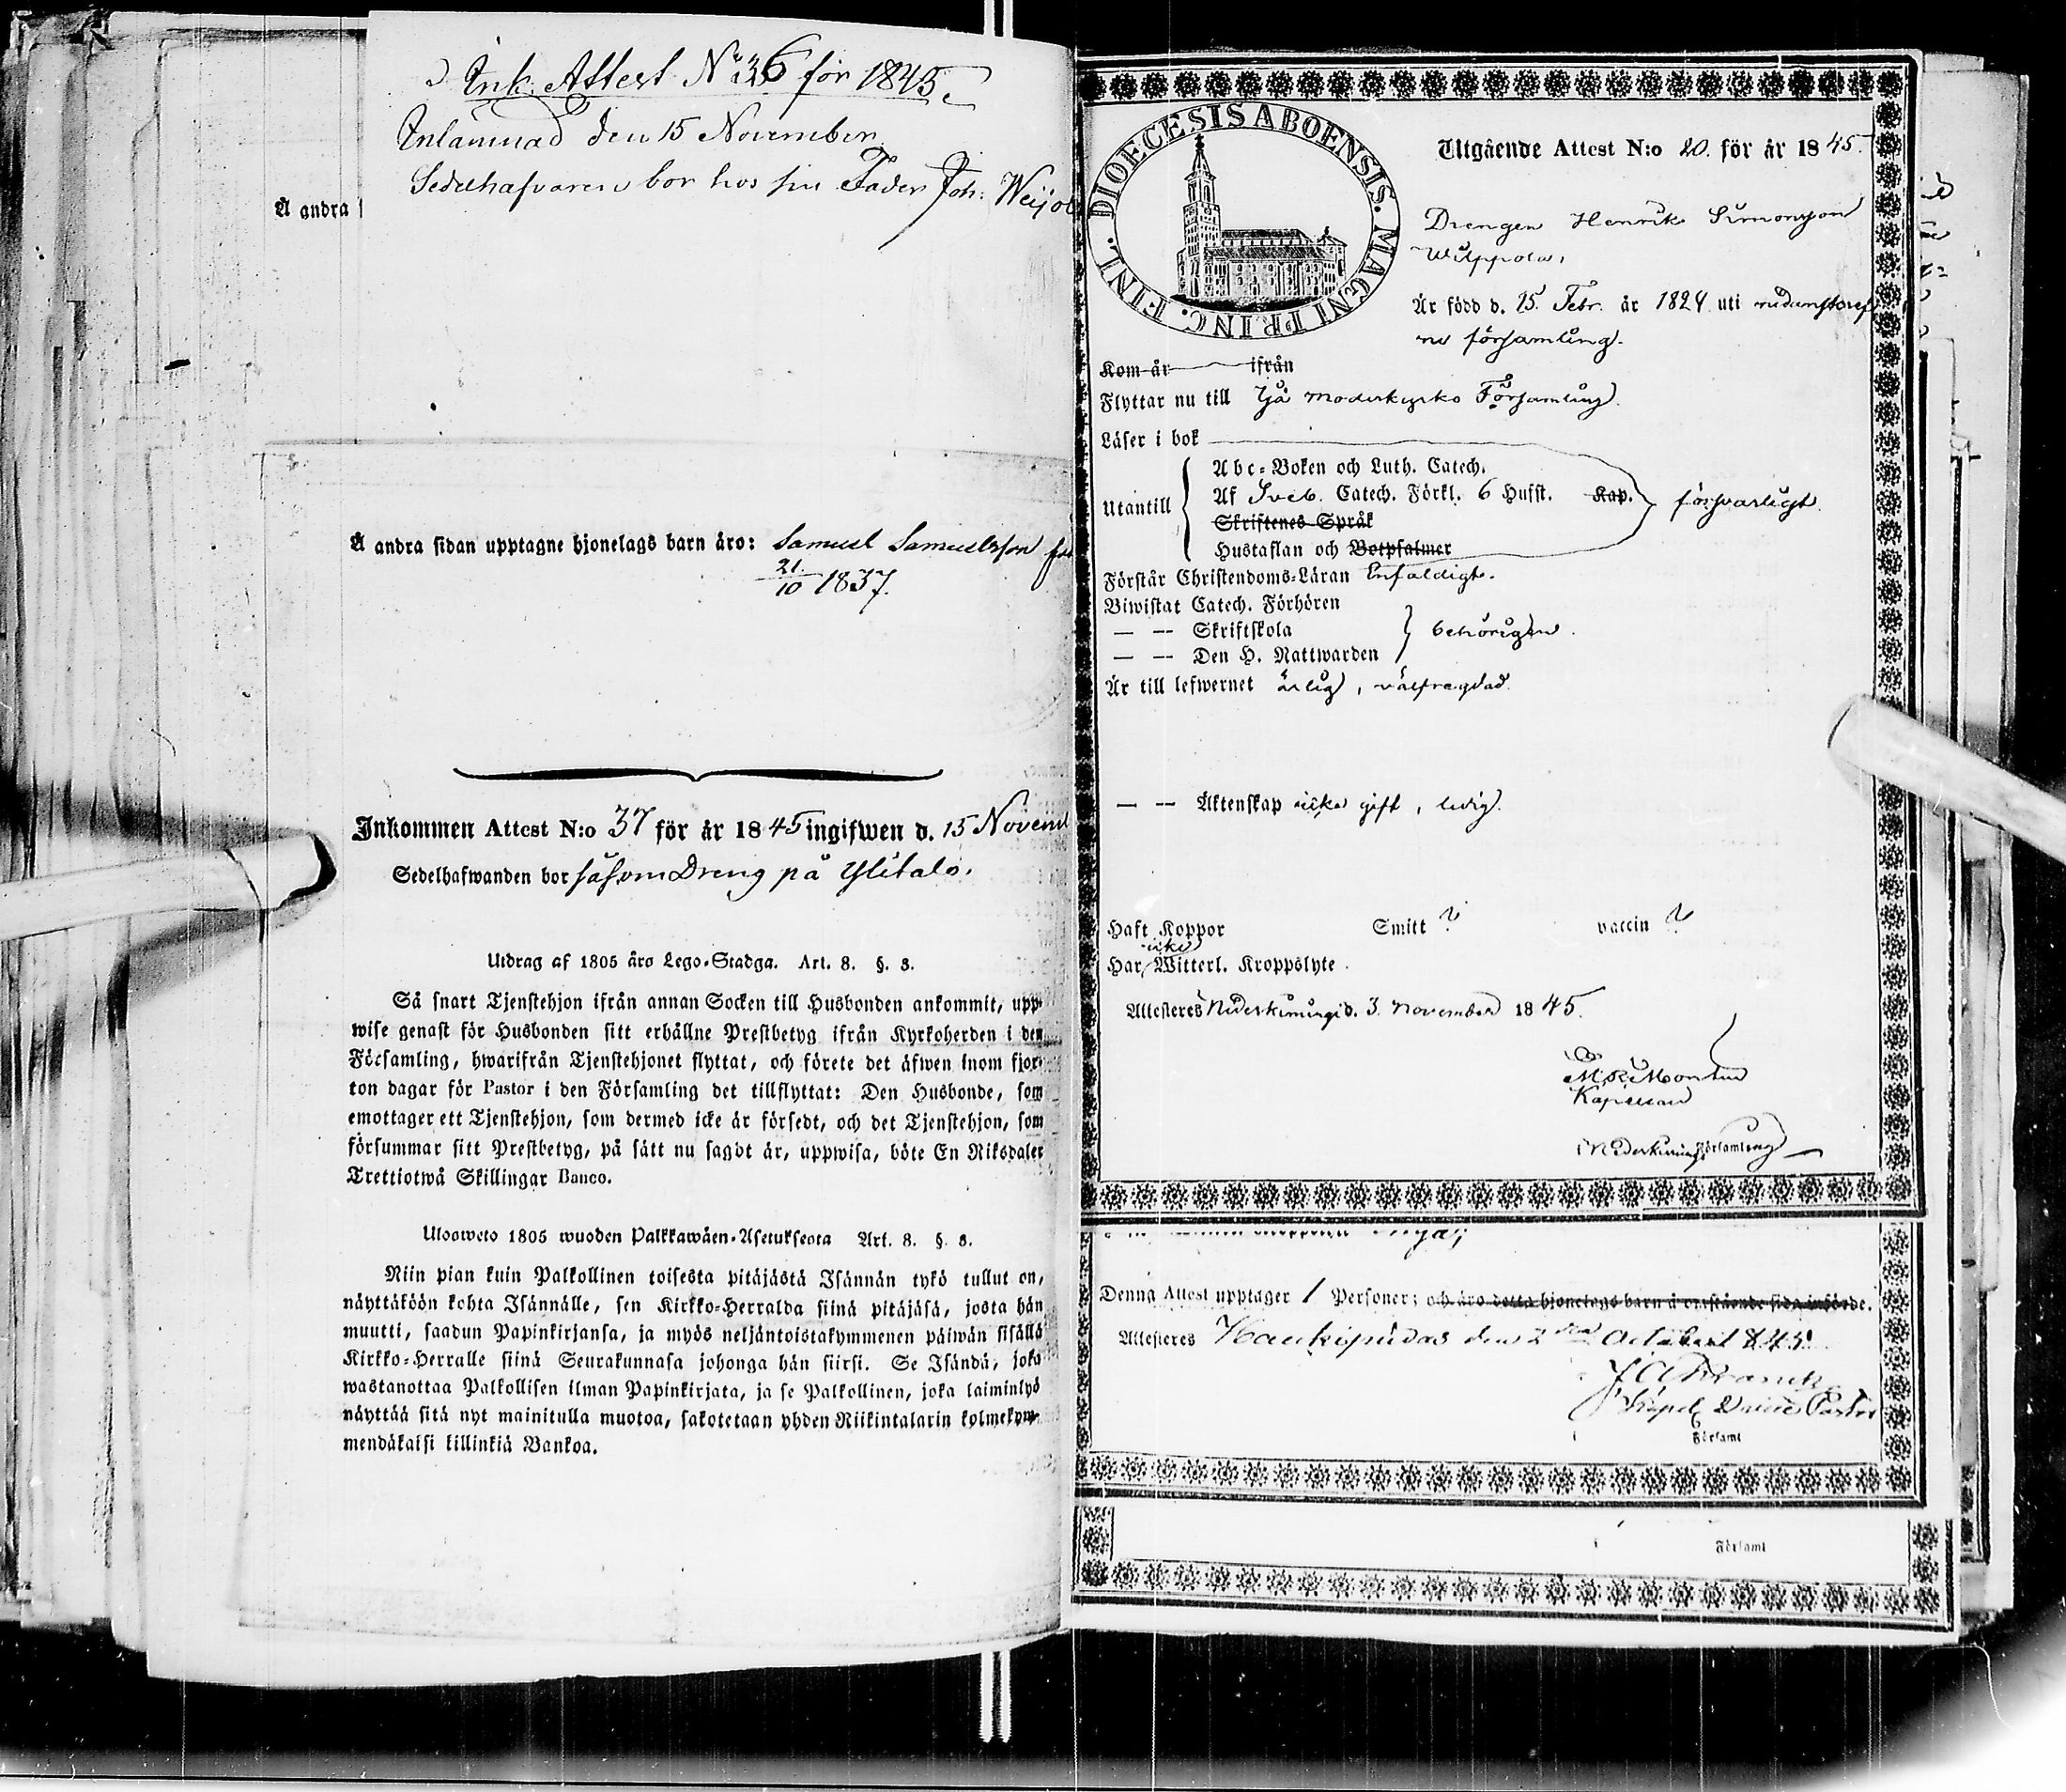 Ink. Attest No 36 för 1845.
Inlämnad den 15 November
Sedelhafvaren bor hos sin Fader Joh.
Å andra
Å andra sidan upptagne hjonelags barn äro: Samuel Samuelsson
21/10 1837.
Inkommen Attest N:o 37 för år 1845 ingifwen d. 15 Novem
Sedelhafwanden bor såsom Dreng på Ylitalo.
Utdrag af 1805 års Lego-Stadga. Art. 8. §. 3.
Så snart Tjenstehjon ifrån annan Socken till Husbonden ankommit, upp-
wise genast för Husbonden sitt erhållne Prestbetyg ifrån Kyrkoherden i den
Församling, hwarifrån Tjenstehjonet flyttat, och förete det äfwen inom fjor-
ton dagar för Pastor i den Församling det tillflyttat: Den Husbonde, som
emottager ett Tjenstehjon, som dermed icke är försedt, och det Tjenstehjon, som
försummar sitt Prestbetyg, på sätt nu sagdt är, uppwisa, böte En Riksdaler
Trettiotwå Skillingar Banco.
Ulosweto 1805 wuoden Palkkawäen-Asetuksesta Art. 8. §. 3.
Niin pian kuin Palkollinen toisesta pitäjästä Isännän tykö tullut on,
näyttäköön kohta Isännälle, sen Kirkko-Herralda siinä pitäjäsä, josta hän
muutti, saadun Papinkirjansa, ja myös neljäntoistakymmenen päiwän sisällä
Kirkko-Herralle siinä Seurakunnasa johonga hän siirsi. Se Isändä, joka
wastanottaa Palkollisen ilman Papinkirjata, ja se Palkollinen, joka laiminlyö
näyttää sitä nyt mainitulla muotoa, sakotetaan yhden Riikintalarin kolmekym-
mendäkaksi killinkiä Bankoa.
DIOECESIS ABOENSIS. MAGNI PRINC. FINL.
Utgående Attest N:o 20. för år 1845.
Drengen Henrik Simonsson
Wilppola,
Är född d. 15 Febr. år 1824 uti nedanskref
ne församling.
Kom år ifrån
Flyttar nu till Ijå moderkyrko Församling.
Läser i bok
Utantill
Abc-Boken och Luth. Catech.
Af Sveb. Catech. Förkl. 6 Hufst. Kap.
Skriftenes Språk
Hustaflan och Botpsalmer
försvarligt.
Förstår Christendoms-Läran Enfaldigt.
Biwistat Catech. Förhören
— — Skriftskola
— — Den H. Nattwarden
behörigen.
Är till lefwernet ärlig, välfrägdad.
— — Äktenskap icke gift, ledig.
Haft Koppor Smitt ? vaccin ?
icke
Har Witterl. Kroppslyte.
Attesteres Nederkimingi d. 3. November 1845.
Kapellan
i Nederkimingi Församling
Denna Attest upptager 1 Personer; och äro detta hjonelags barn å omstående sida införde.
Attesteres Haukipudas den 2 October 1845
Församl
Församl